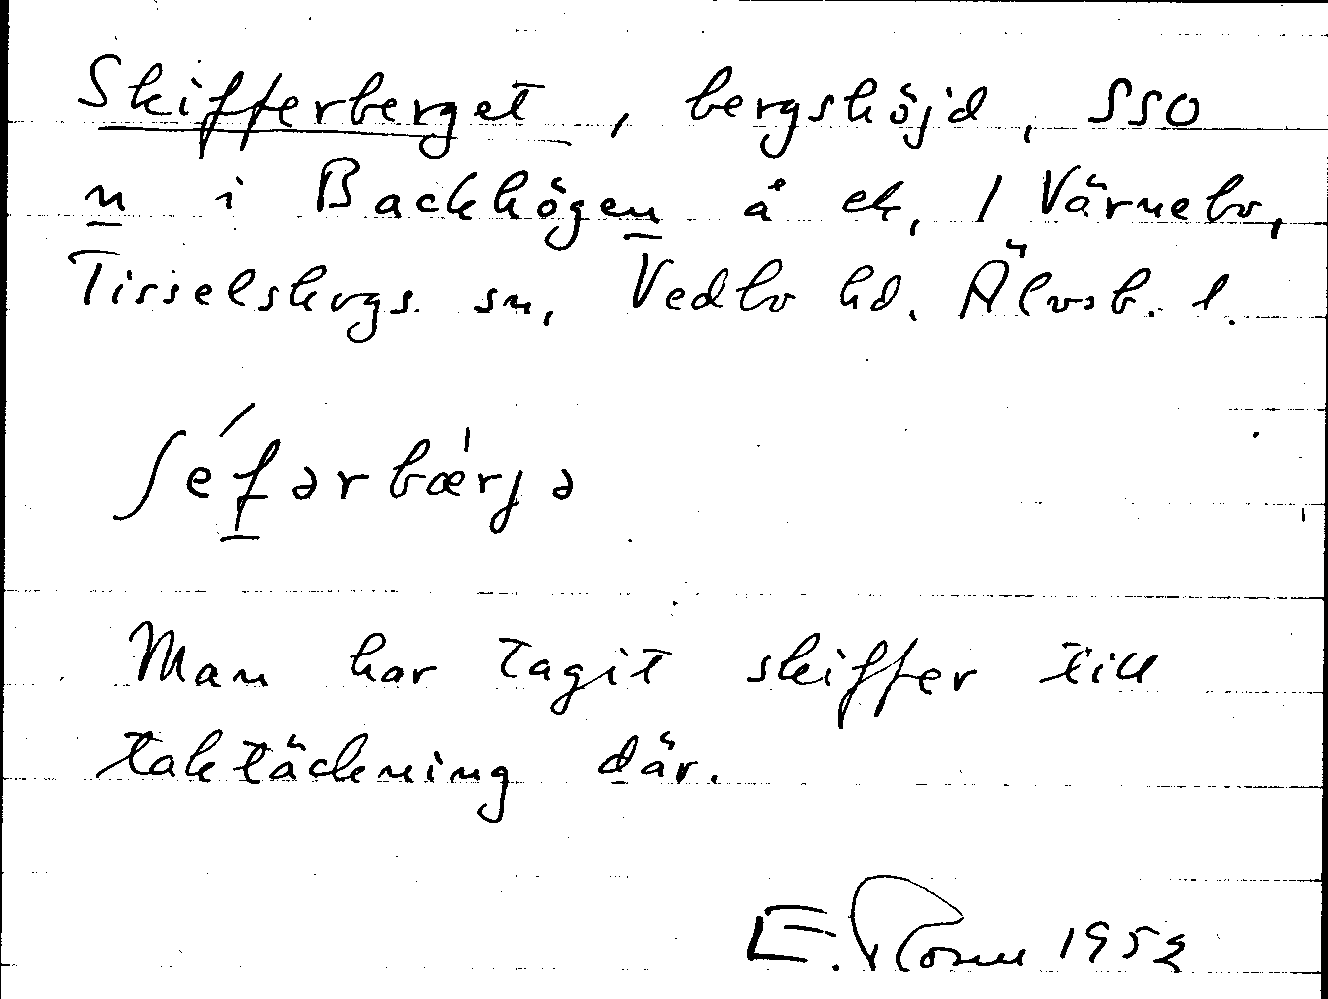 Skifferberget, bergshöjd, SSO
n i Backhögen å ek, 1 Värnebo,
Tisselskogs. sn, Vedbo hd. Älvsb. l.
ʃéfərbær̍jə
Man har tagit skiffer till
taktäckning där.
E. Rosell 1952